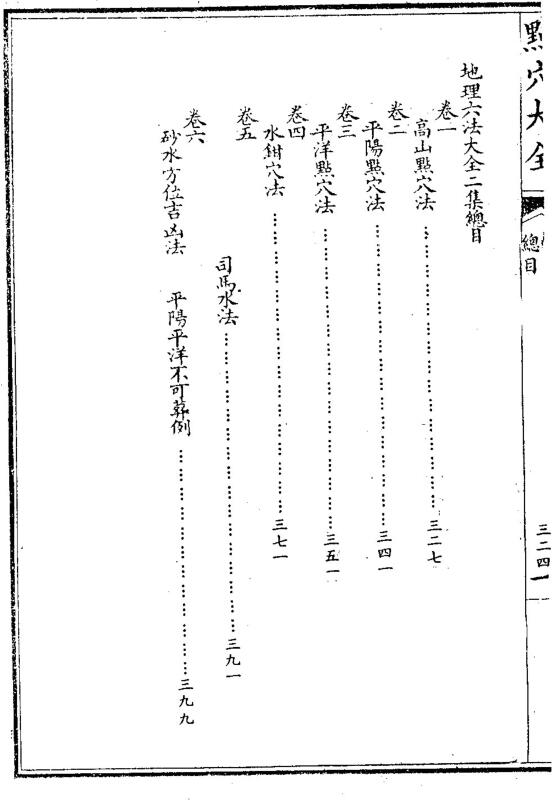 點穴大全
總目
三二四
地理六法大全二集總目
卷一
高山點穴法……三二七
卷二
平陽點穴法……三四一
卷三
平洋點穴法……三五一
卷四
水鉗穴法……三七一
卷五
司馬水法……三九一
卷六
砂水方位吉凶法 平陽平洋不可葬例……三九九